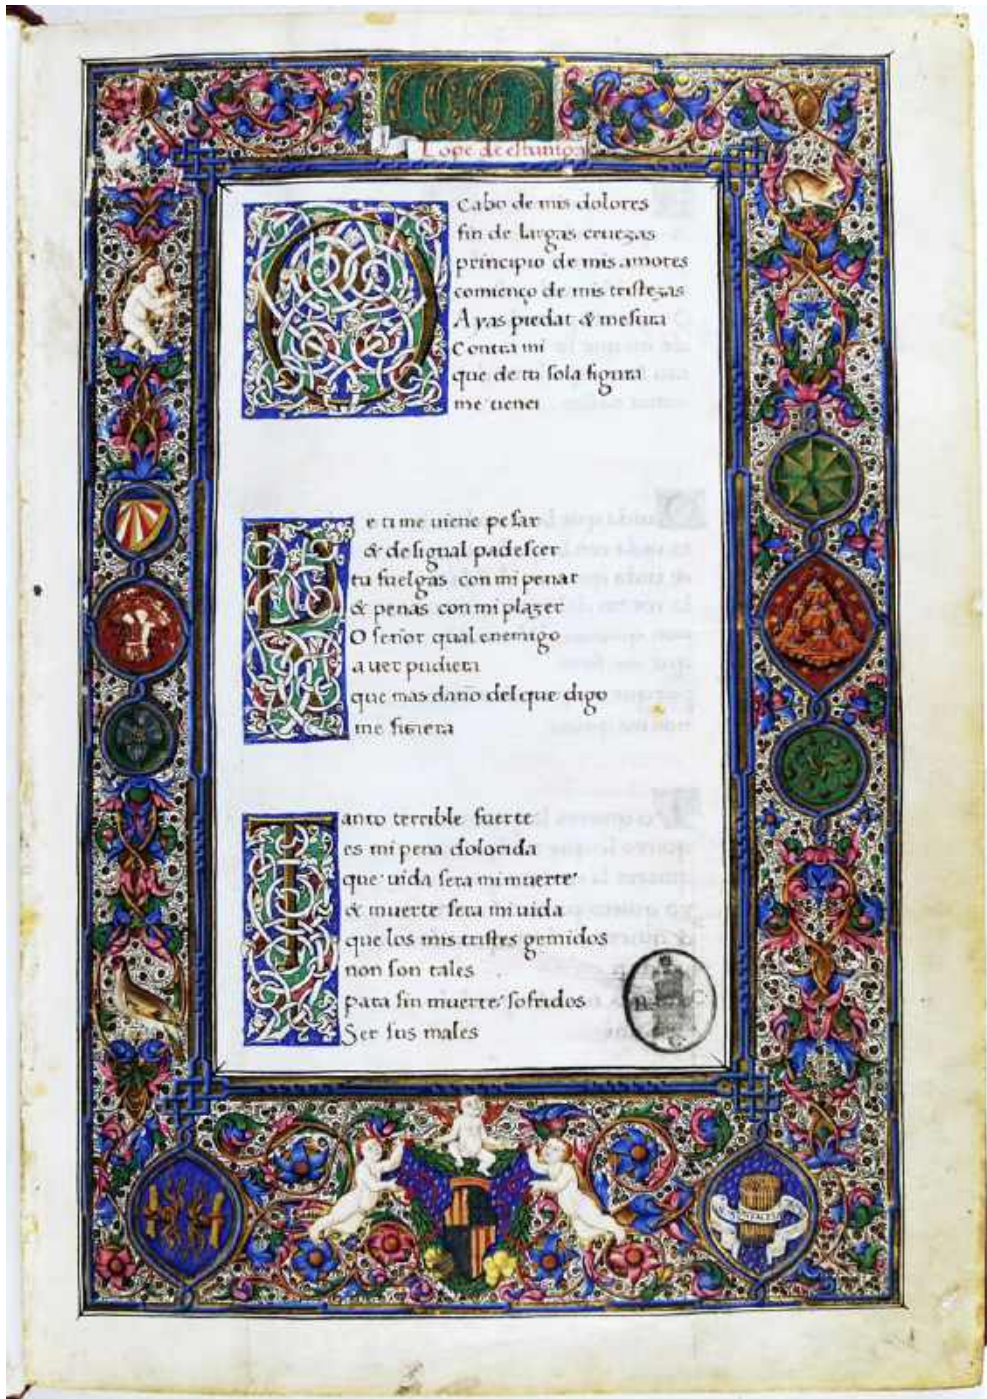 Lope de estuniga
O Cabo de mis dolores
fin de largas cruezas
principio de mis amores
comienço de mis tristezas
Ayas piedat & mesura
Contra mi
que de tu sola figura
me uenci
De ti me uiene pesar
& desigual padescer
tu fuelgas con mi penar
& penas con mi plazer
O señor qual enemigo
auer pudiera
que mas daño del que digo
me fiziera
Tanto terrible fuerte
es mi pena dolorida
que uida sera mi muerte
& muerte sera mi uida
que los mis tristes gemidos
non son tales
para sin muerte sofridos
Ser sus males